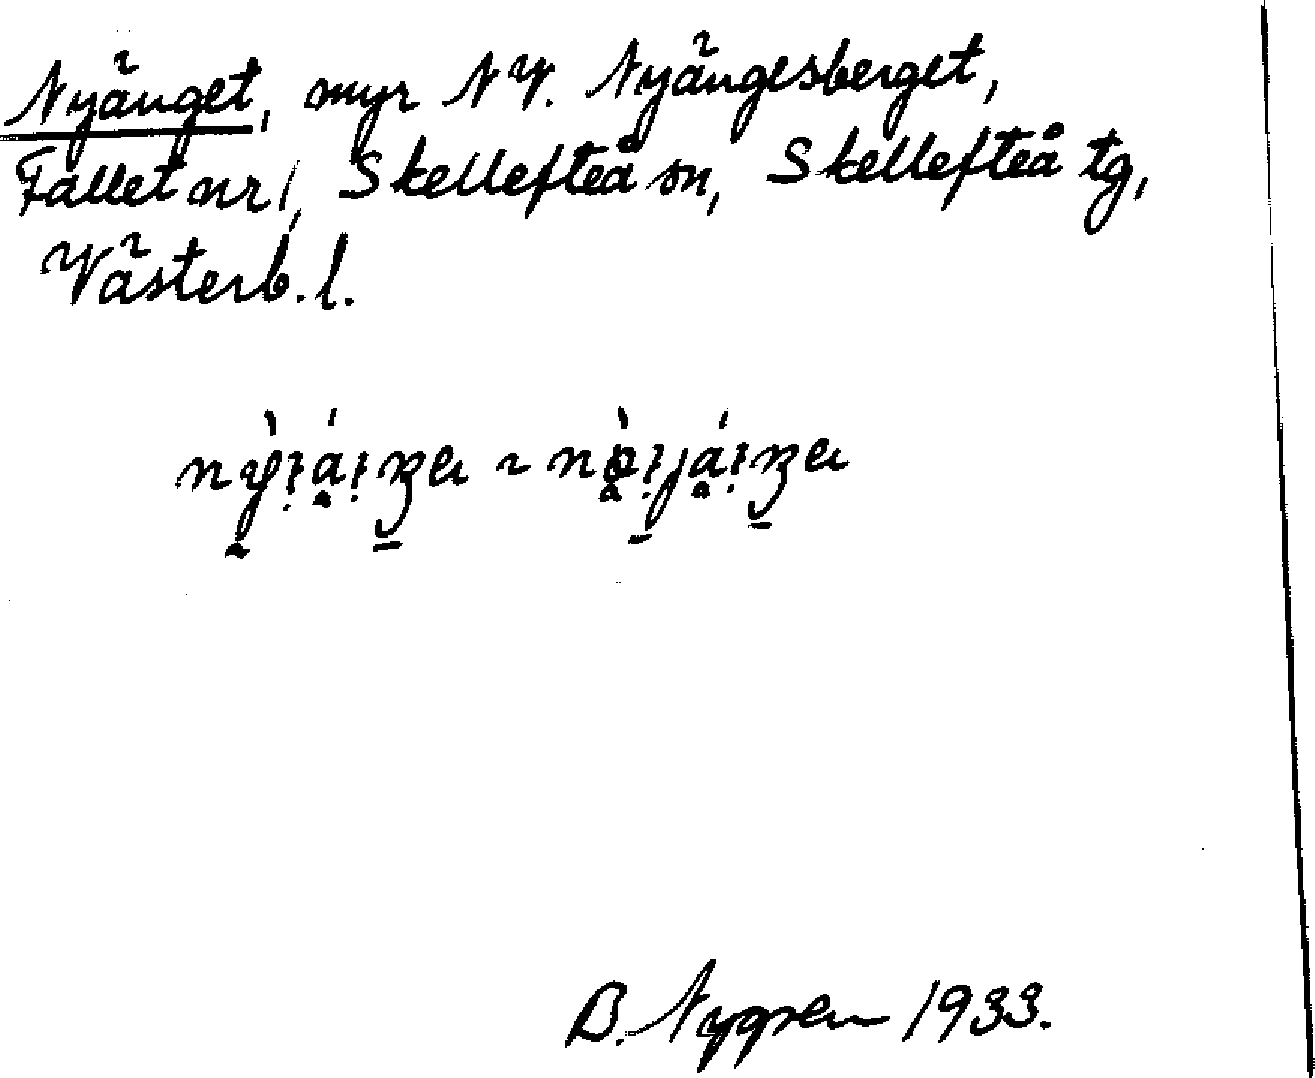 Nyänget, myr NV. Nyängesberget,
Fallet nr 1, Skellefteå sn, Skellefteå tg,
Västerb. l.
B. Nygren 1933.